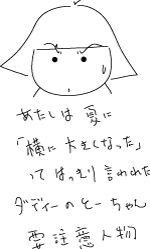 あたしは 夏に
「横に大きくなった」
ってはっきり言われた
ダディーのとーちゃん
要注意人物